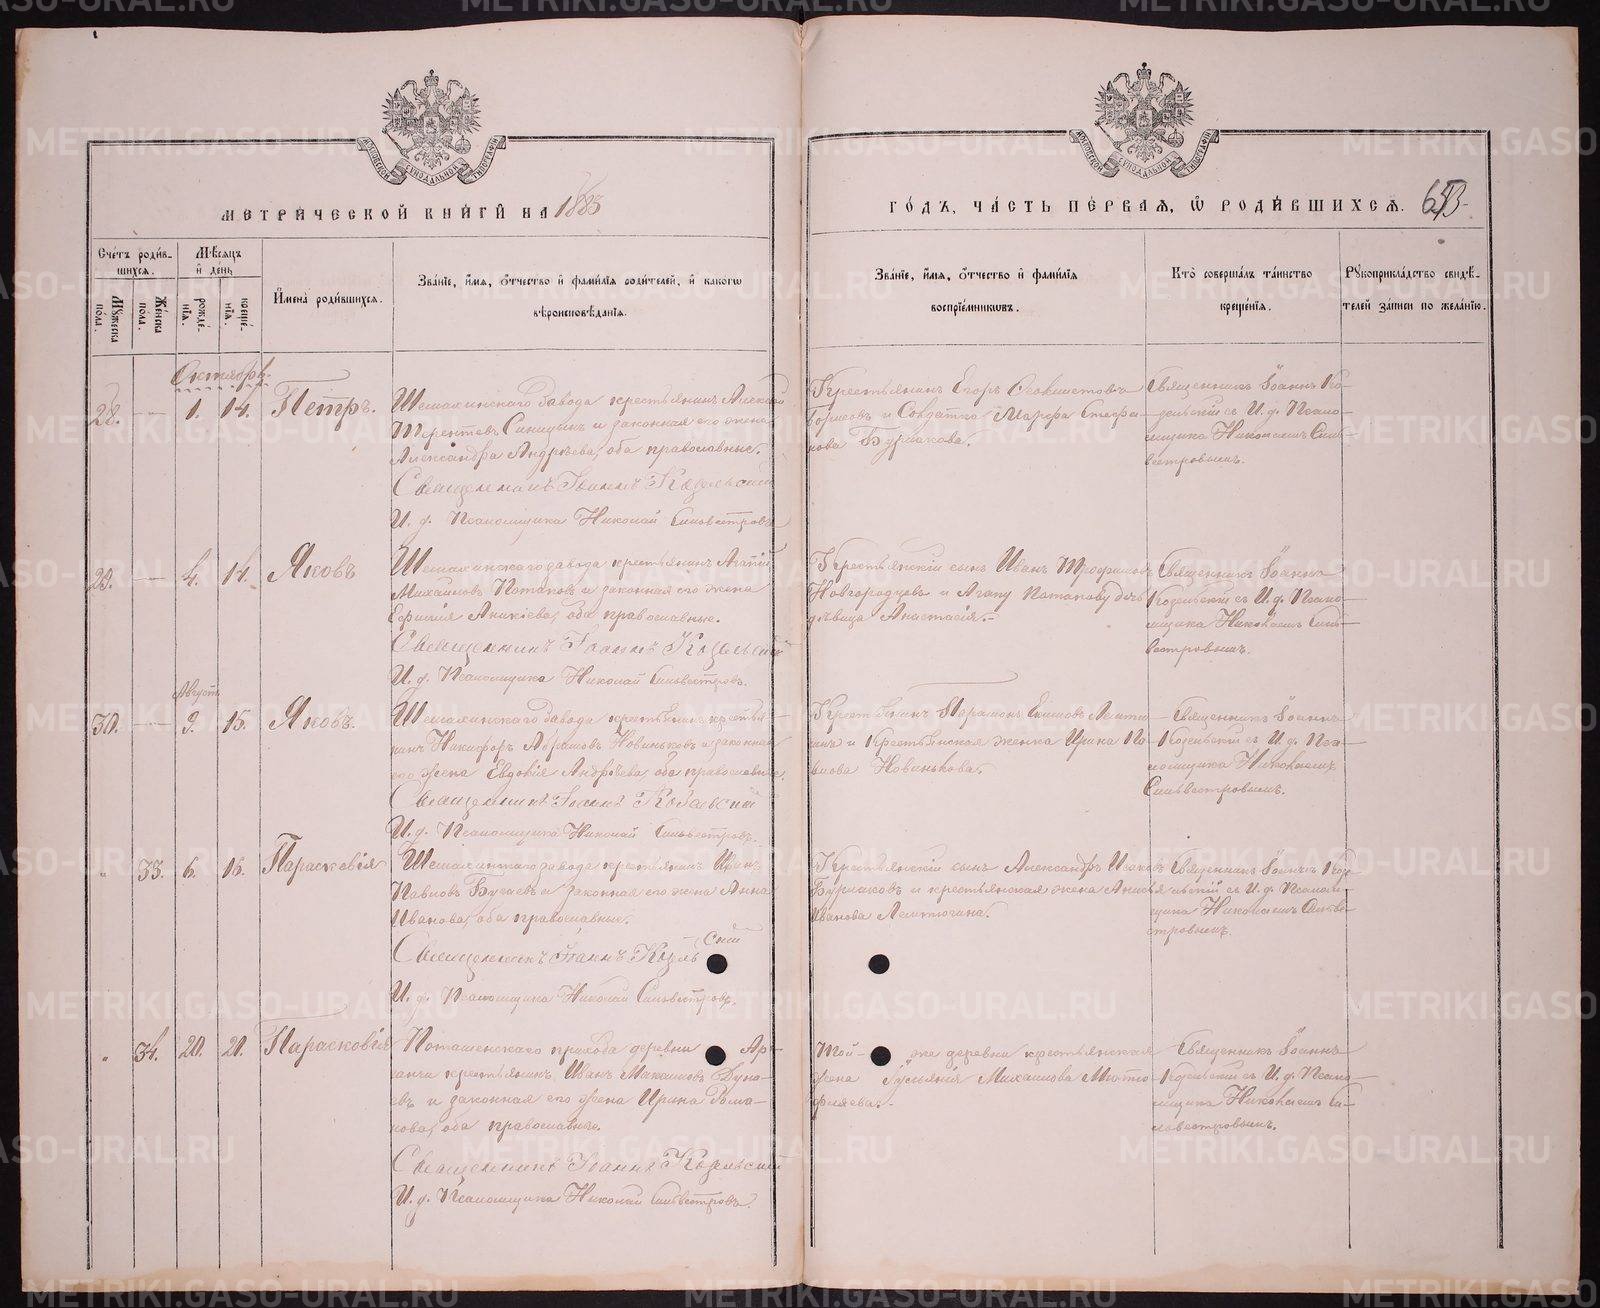 МЕТРИЧЕСКОЙ КНИГИ НА 1883
ГОДЪ, ЧАСТЬ ПЕРВАЯ, Ѿ РОДИВШИХСЯ.
Счетъ родив-
шихся.
Мѣсяцъ
и день
Мужеска
пола.
Женска
пола.
рожде-
нія.
креще-
нія.
Имена родившихся.
Званіе, имя, отчество и фамилія родителей, и какогѡ
вѣроисповѣданія.
Званіе, имя, отчество и фамилія
воспріемниковъ.
Кто совершалъ таинство
крещенія.
Рукоприкладство свидѣ-
телей записи по желанію.
Октябрь.
28. 1. 14. Петръ.
Шемахинскаго завода крестьянинъ Алексѣй
Терентьевъ Синицынъ и законная его жена
Александра Андреева, оба православные.
Священникъ Іоаннъ Козельскій
И. д. Псаломщика Николай Сильвестровъ
Крестьянинъ Егоръ
и Солдатка Марфа Стефа-
нова Бурмакова.
Священникъ Іоаннъ Ко-
зельскій съ И. д. Псало-
мщика Николаемъ Силь-
вестровымъ.
29. 4. 14. Яковъ
Шемахинскаго завода крестьянинъ
Михайловъ Потаповъ и законная его жена
Ефимія Аникіева, оба православные.
Священникъ Іоаннъ Козельскій
И. д. Псаломщика Николай Сильвестровъ.
Крестьянскій сынъ Иванъ Трофимовъ
Новгородцевъ и Потапова дочь
дѣвица Анастасія.
Священникъ Іоаннъ
Козельскій съ И. д. Псало-
мщика Николаемъ Силь-
вестровымъ.
Августъ
30. 9. 15. Яковъ.
Шемахинскаго завода крестьянинъ крестья-
нинъ Никифоръ Абрамовъ Новиньковъ и законная
его жена Евдокія Андреева, оба православные.
Священникъ Іоаннъ Козельскій
И. д. Псаломщика Николай Сильвестровъ.
Крестьянинъ Парамонъ Екимовъ
и крестьянская женка Ирина
Новинькова.
Священникъ Іоаннъ
Козельскій съ И. д. Пса-
ломщика Николаемъ
Сильвестровымъ.
33. 6. 16. Параскевія
Шемахинскаго завода крестьянинъ Иванъ
Павловъ и законная его жена Анна
Иванова, оба православные.
Священникъ Іоаннъ Козельскій
И. д. Псаломщика Николай Сильвестровъ.
Крестьянскій сынъ Александръ Исаковъ
Бурмаковъ и крестьянская жена Анисья
Иванова
Священникъ Іоаннъ Козе-
льскій съ И. д. Псалом-
щика Николаемъ Сильве-
стровымъ.
34. 20. 21. Парасковія
Поташенскаго прихода деревни Ар-
крестьянинъ Иванъ Макаимовъ Дуна-
евъ и законная его жена Ирина Рома-
нова, оба православные.
Священникъ Іоаннъ Козельскій
И. д. Псаломщика Николай Сильвестровъ.
Той же деревни крестьянская
жена Михаилова
Священникъ Іоаннъ
Козельскій съ И. д. Псало-
мщика Николаемъ Си-
львестровымъ.
METRIKI.GASO-URAL.RU